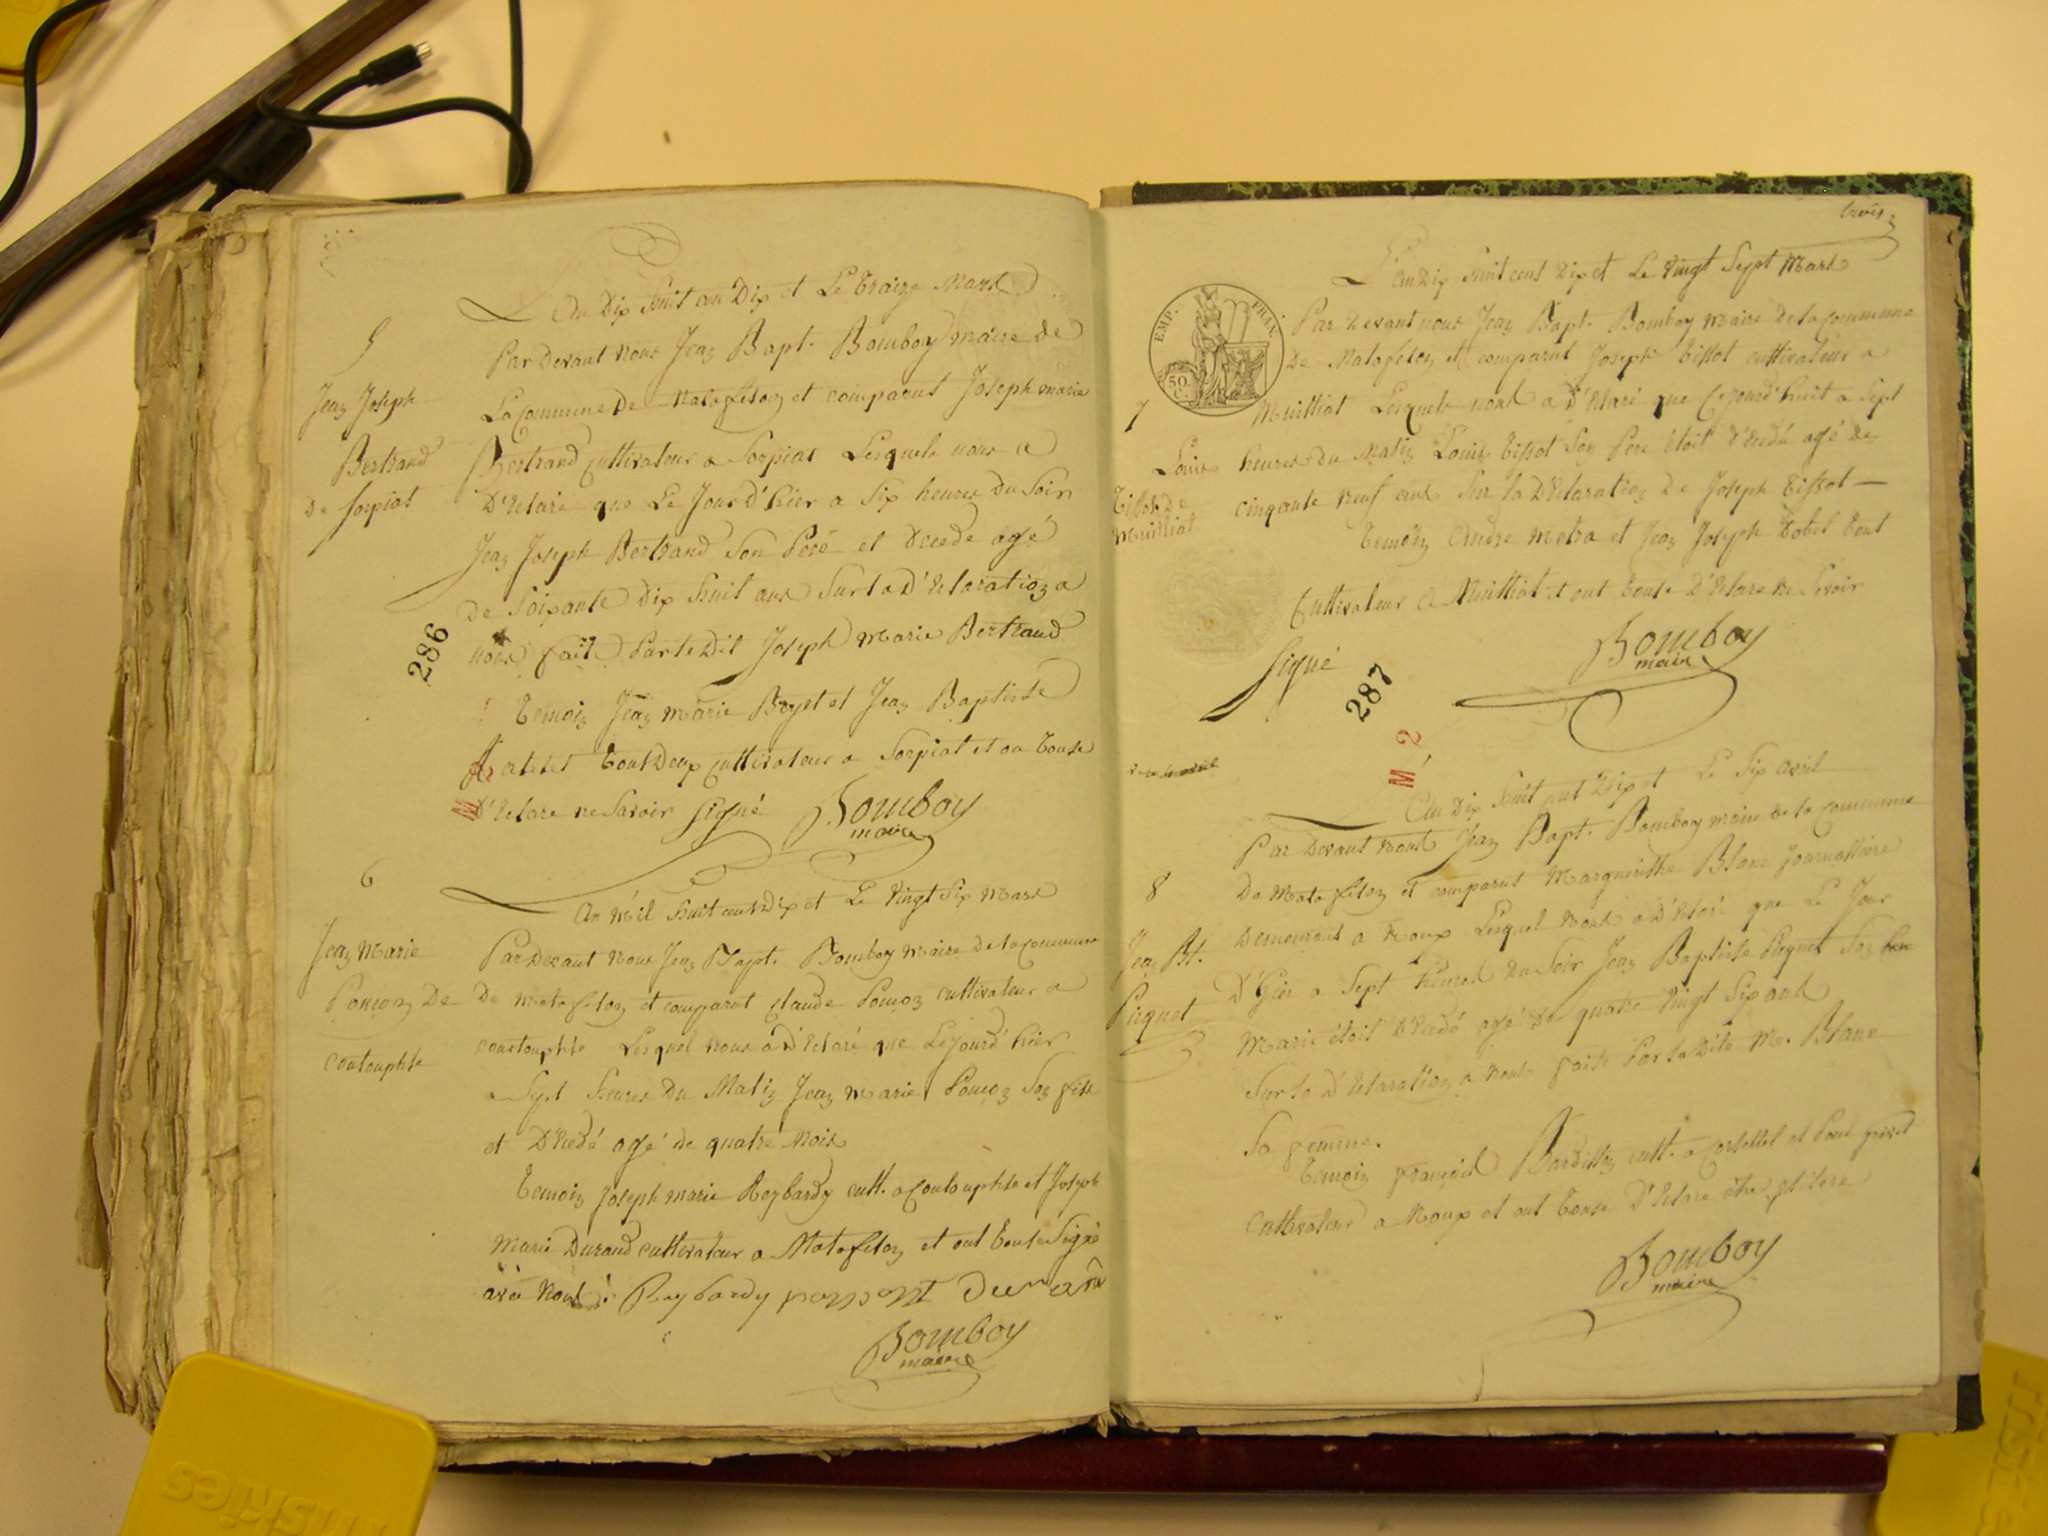 5
Jean Joseph
Bertrand
de Sorpiat
An Dix huit an Dix et Le traize Mars
Par Devant nous Jean Bapt. Bomboy maire de
La Commune De Matafelon et comparut Joseph marie
Bertrand cultivateur a Sorpiat Lesquels nous a
D'Eclaré que Le Jour d'hier a Six heures du Soir
Jean Joseph Bertrand Son Peré et Décede agé
De Soixante Dix huit ans Sur la D'Eclaration a
nous fait Par le Dit Joseph Marie Bertrand
286
Temoin Jean Marie et Jean Baptiste
tout Deux cultivateur a Sorpiat et on touse
D'Eclare ne Savoir Signé Bomboy
maire
6
Jean Marie
Ponçon De
Coutouphle
An Mil huit cent Dix et Le Vingt Six Mars
Par Devant nous Jean Bapt. Bomboy Maire De la Commune
De Matafelon et comparut Claude Ponçon cultivateur a
Coutouphle Lesquel nous a D'Eclaré que Lejourd'hier
a Sept heures Du Matin Jean Marie Ponçon Son fils
et D'écedé agé de quatre Mois
Temoin Joseph marie Reybardy cult. a Coutouphle et Joseph
Marie Durand cultivateur a Matafelon et ont touse Signé
avé Nous: Reybardy Durand
Bomboy
maire
trois
EMP. FRAN.
50
C.
L'an Dix huit cens Dix et Le Vingt Sept Mars
Par Devant nous Jean Bapt. Bomboy Maire De la Commune
De Matafelon et comparut Joseph Tissot cultivateur a
7
Louis
Tissot De
Muilliat
Muilliat Lesquels nous a D'Eclaré que Cejourd'huit a Sept
heures du Matin Louis Tissot Son Pere étoit D'écedé agé de
cinqante neuf ans Sur la D'Eclaration De Joseph Tissot
Temoin Andre Metra et Jean Joseph Tobet tout
Cultivateur a Muilliat et ont touse D'Eclare ne Savoir
Signé
Bomboy
maire
287
M, 2
An Dix huit cent Dix et Le Six avril
Par Devant nous Jean Bapt. Bomboy maire de la Commune
8
Jean Bt.
Piquet
De Matafelon et comparut Marguerithe Blanc Journallière
Demeurant a Noux Lesquel nous a D'Eclaré que Le Jour
D'hier a Sept heures Du Soir Jean Baptiste Piquet Son
Marie étoit D'écedé agé De quatre Vingt Six ans
Sur la D'Eclaration a nous faite Par la Dite M. Blanc
Sa femme.
Temoin François Bardillon cult. a Corcelles et Paul
Cultivateur a Noux et ont touse D'Eclare être
Bomboy
maire